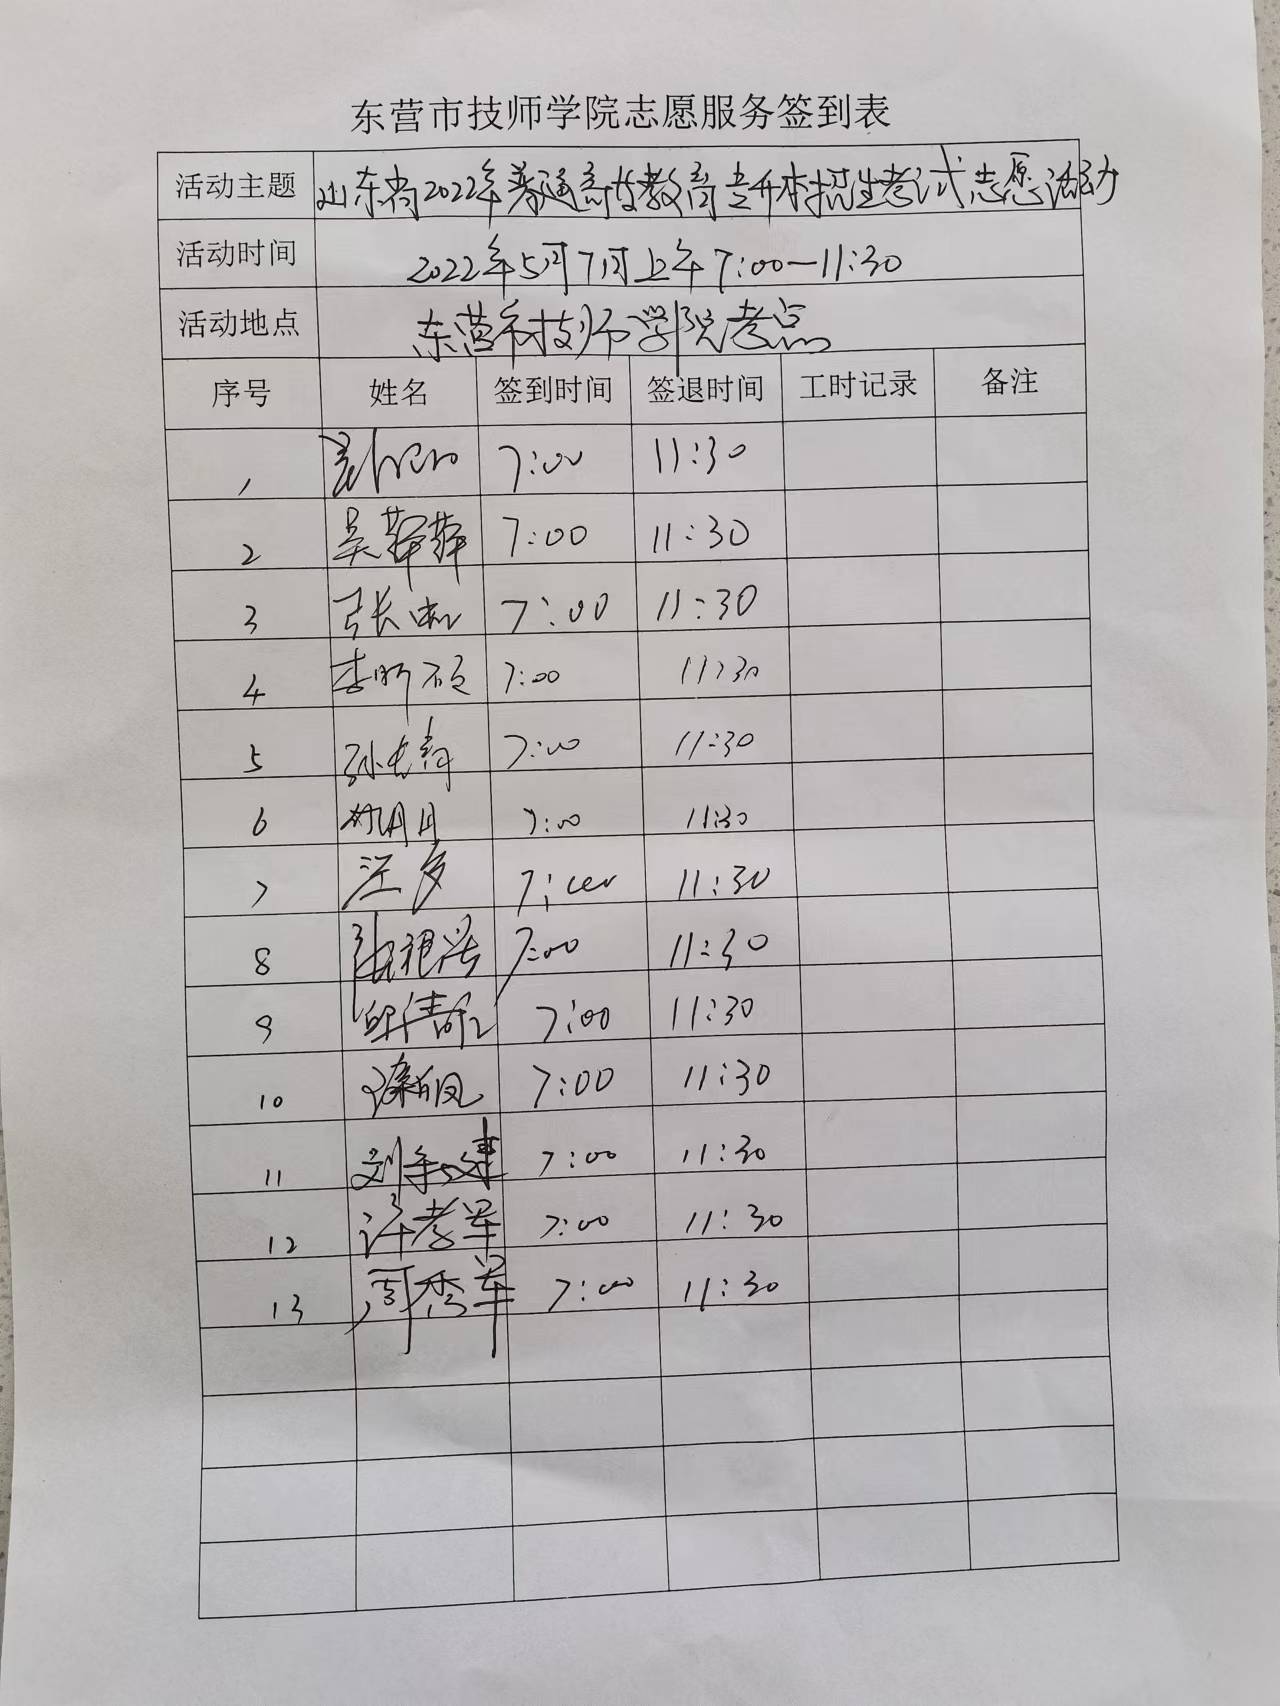 东营市技师学院志愿服务签到表
活动主题 山东省2022年普通高校教育专升本招生考试志愿活动
活动时间 2022年5月7日上午7:00—11:30
活动地点 东营市技师学院考点
序号 姓名 签到时间 签退时间 工时记录 备注
1 7:00 11:30
2 吴萍萍 7:00 11:30
3 张 7:00 11:30
4 李昕 7:00 11:30
5 孙长青 7:00 11:30
6 姚月月 7:00 11:30
7 汪多 7:00 11:30
8 7:00 11:30
9 7:00 11:30
10 7:00 11:30
11 刘 7:00 11:30
12 许孝军 7:00 11:30
13 周秀军 7:00 11:30